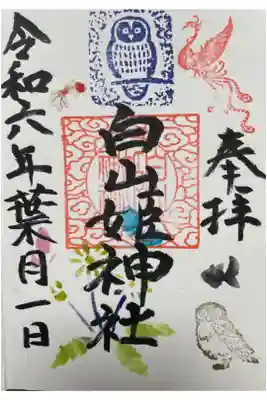 奉拝
白山姫神社
令和六年葉月一日